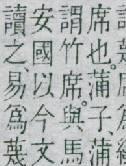 席也。蒲子、蒲
謂竹席。與馬
安國以今文
讀之易爲蔑